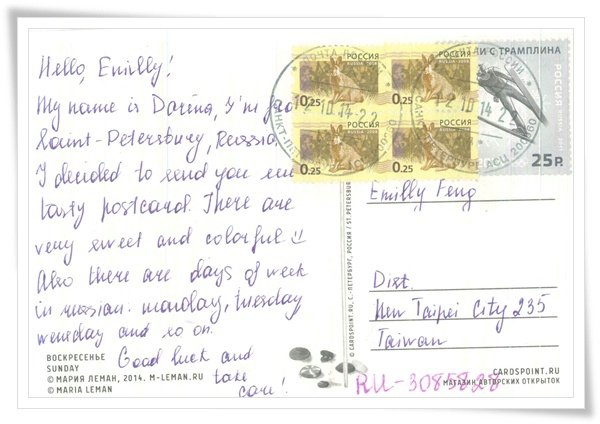 Hello, Emilly!
My name is Darina, I'm fro
Saint-Petersburg, Reossia.
I decided to send you
tasty postcard. There are
very sweet and colorful :)
Also there are days of week
in russian. monday, tuesday
wensday and so on.
Good luck and
take
care!
ВОСКРЕСЕНЬЕ
SUNDAY
© МАРИЯ ЛЕМАН, 2014. M-LEMAN.RU
© MARIA LEMAN
© CARDSPOINT.RU, С.-ПЕТЕРБУРГ, РОССИЯ / ST.PETERSBUR
РОССИЯ
RUSSIA·2008
0.25
РОССИЯ
RUSSIA·2008
0.25
РОССИЯ
RUSSIA·2008
0.25
РОССИЯ
RUSSIA·2008
0.25
И С ТРАМПЛИНА
РОССИЯ
25 Р.
12 10 14 22
12 10 14 22
Emilly Feng
Dist.
New Taipei City 235
Taiwan
CARDSPOINT.RU
МАГАЗИН АВТОРСКИХ ОТКРЫТОК
RU-3085828